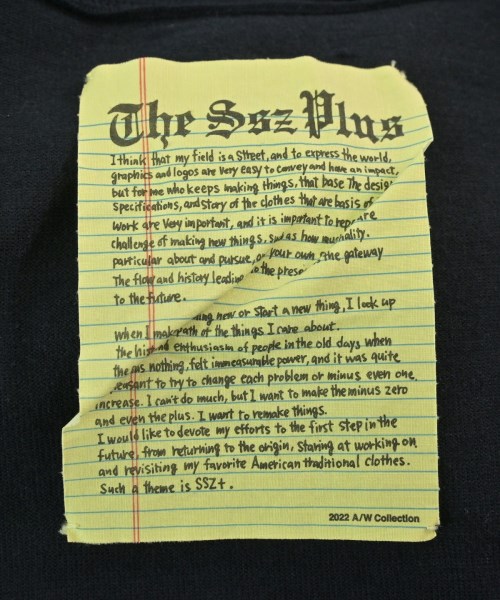 The Ssz Plus
I think that my field is a Street, and to express the world,
graphics and logos are very easy to convey and have an impact,
but for me who keeps making things, that base The desig
Specifications, and Story of the clothes that are basis of
work are very important, and it is important to
challenge of making new things. such as how
particular about and pursue, your own, the gateway
The flow and history leading to the prese
to the future.
new or Start a new thing, I look up
when I of the things I care about.
the enthusiasm of people in the old days when
the nothing. felt immeasurable power, and it was quite
to try to change each problem or minus even one.
increase. I can't do much, but I want to make the minus zero
and even the plus. I want to remake things.
I would like to devote my efforts to the first step in the
future, from returning to the origin, Staring at working on
and revisiting my favorite American traditional clothes.
Such a theme is SSZ+.
2022 A/W Collection